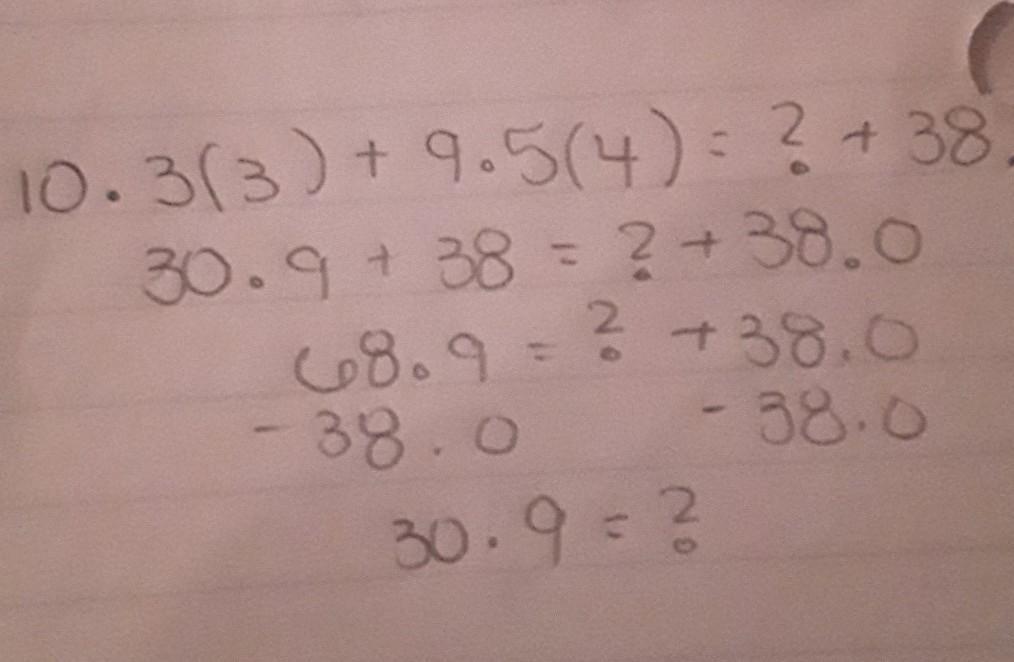 10.3(3) + 9.5(4) = ? + 38.
30.9 + 38 = ? + 38.0
68.9 = ? + 38.0
- 38.0 - 38.0
30.9 = ?